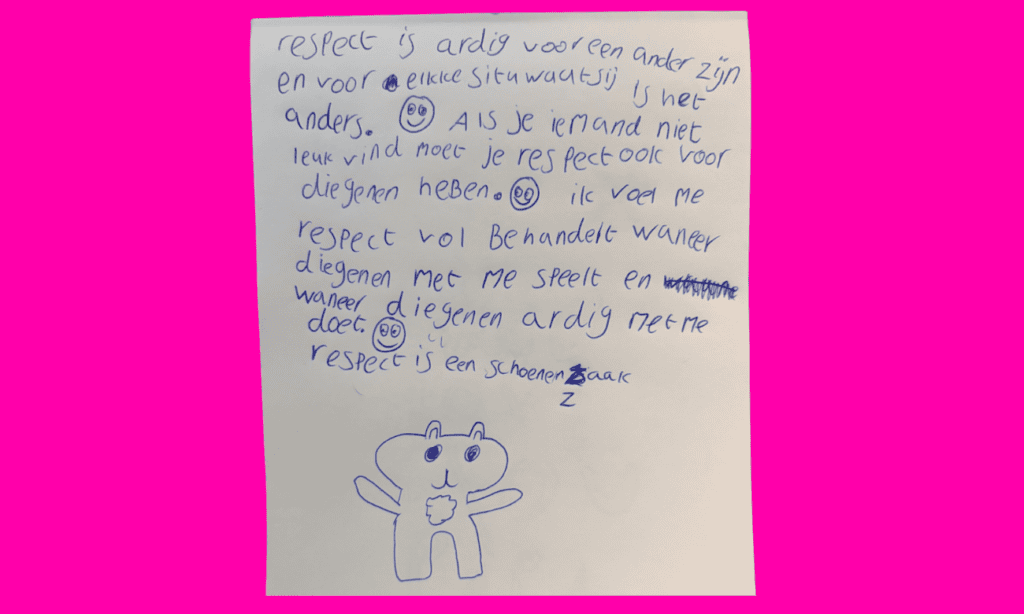 respect is ardig voor een ander zijn
en voor elkke situwaatsij is het
anders. Als je iemand niet
leuk vind moet je respect ook voor
diegenen heBen. ik voel me
respect vol Behandelt waneer
diegenen met me speelt en
waneer diegenen ardig met me
doet.
respect is een schoenen zaak
z